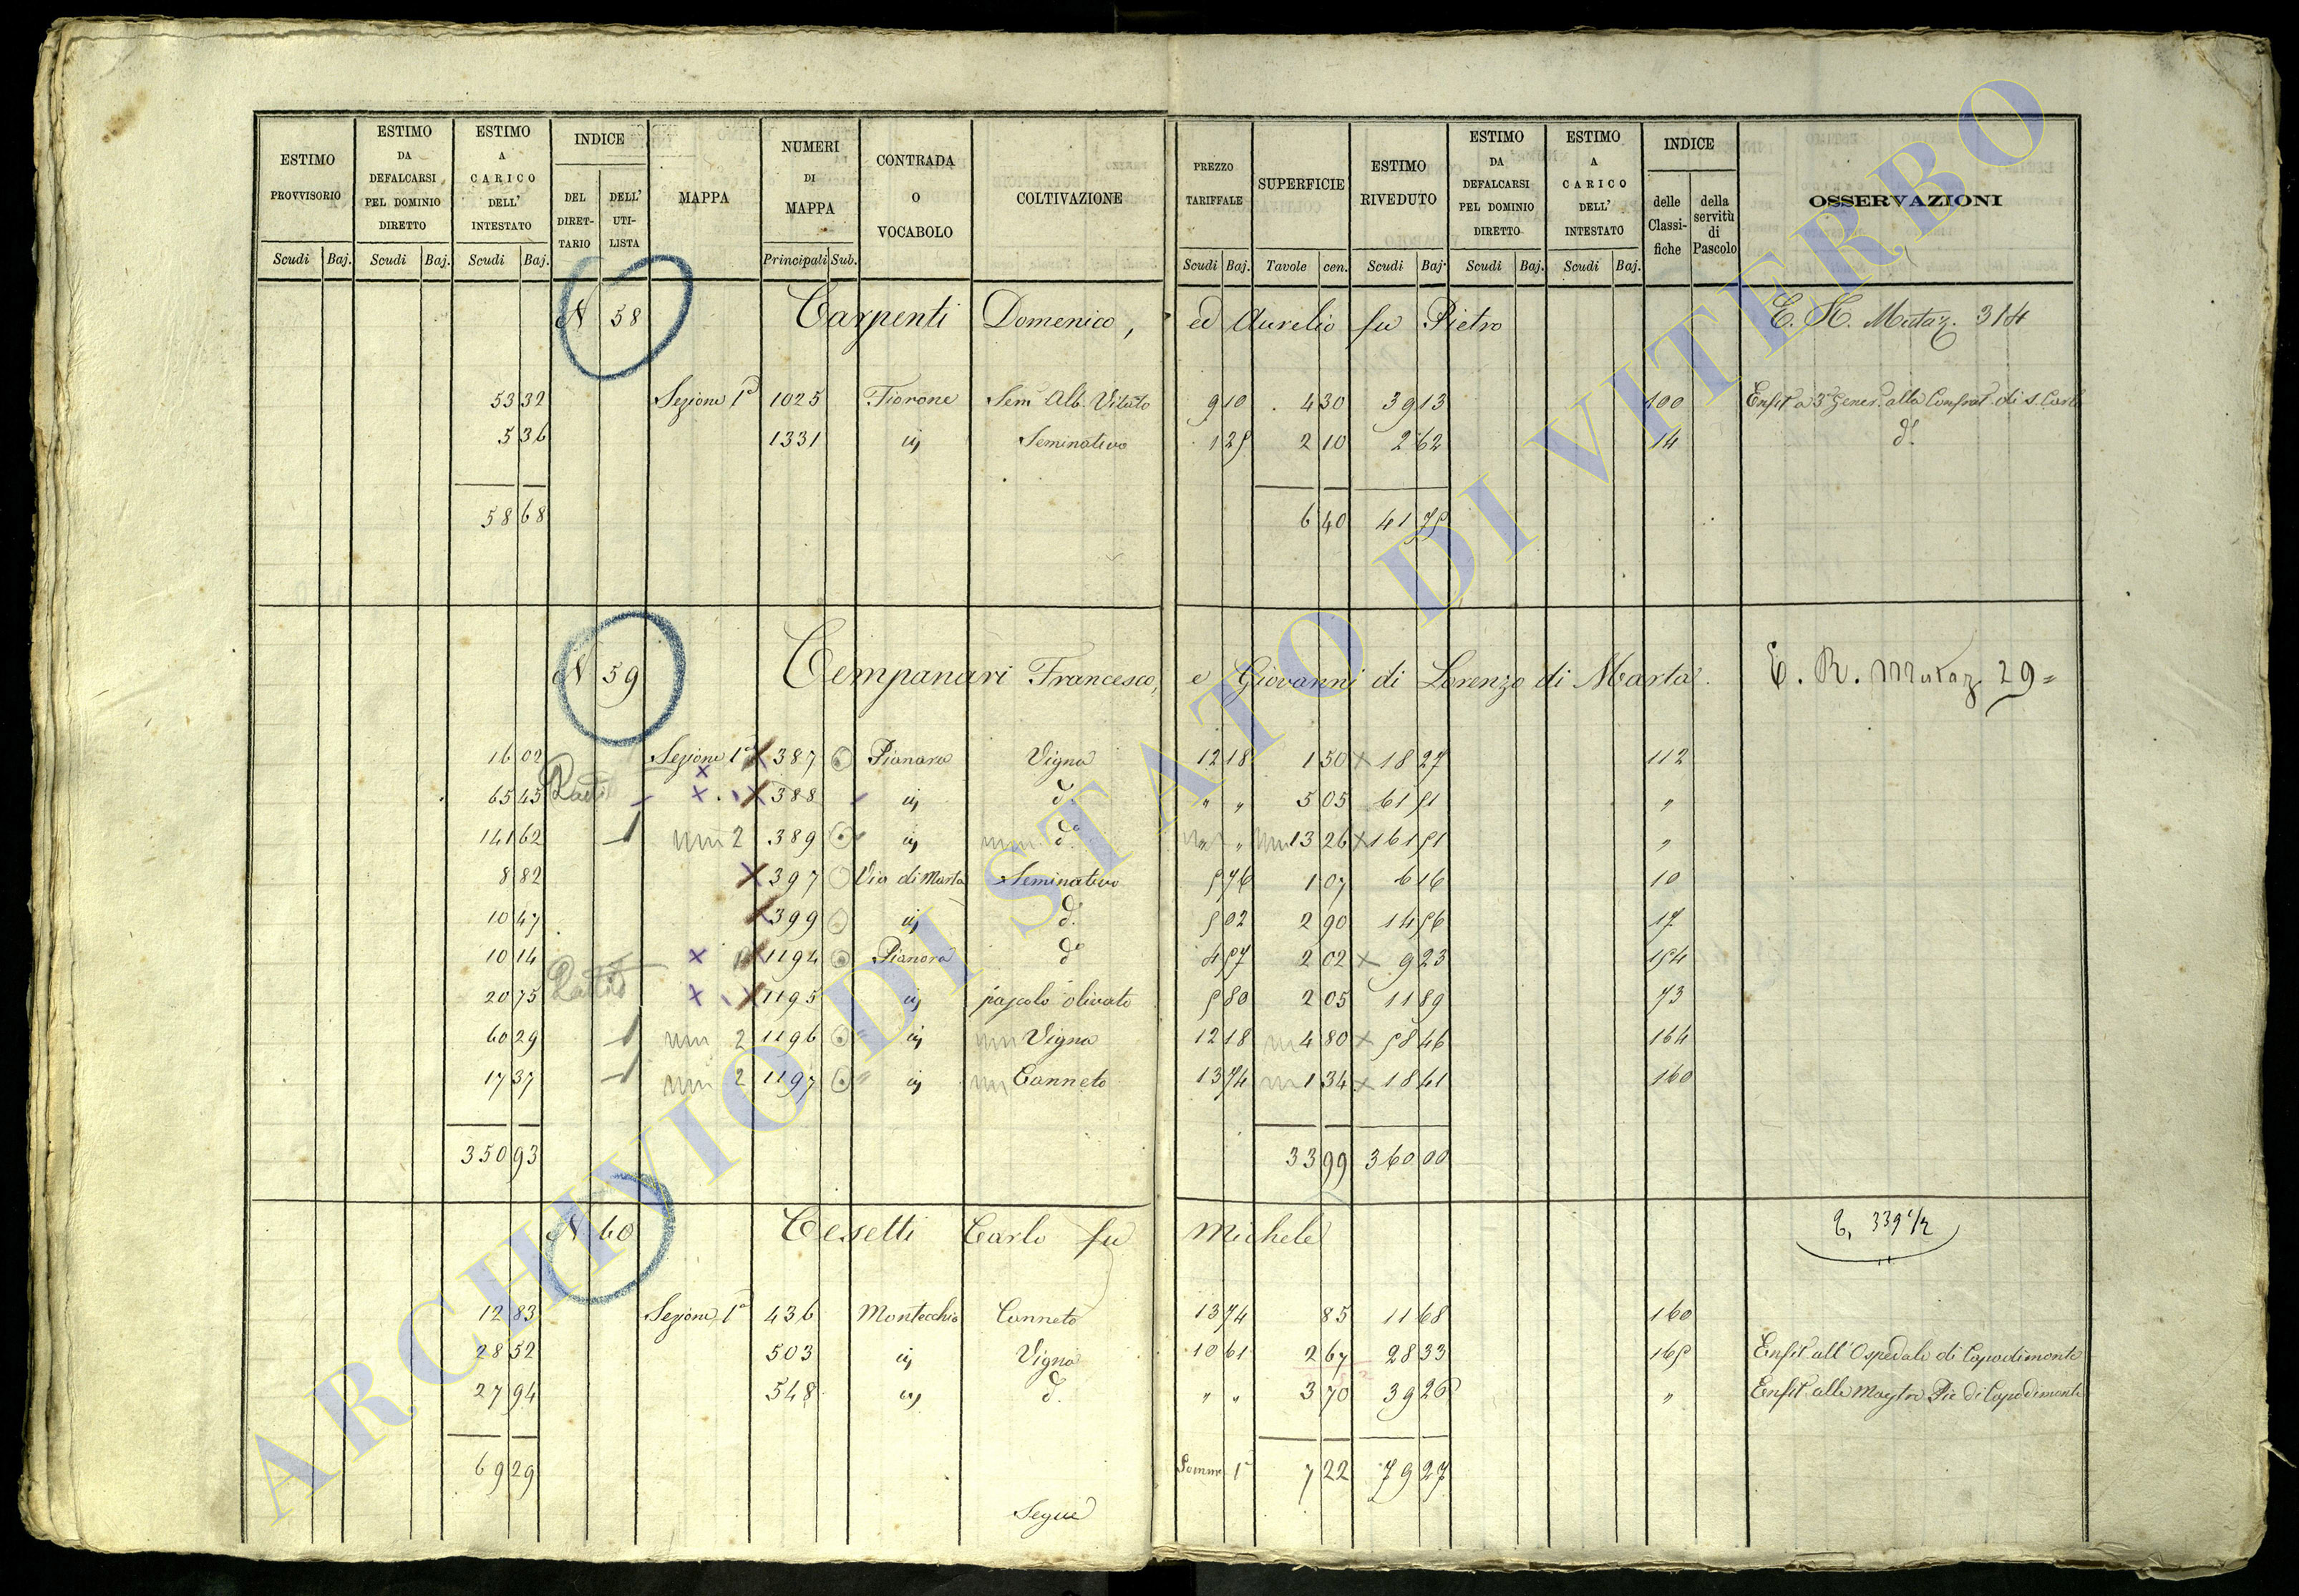 ESTIMO PROVVISORIO | ESTIMO DA DEFALCARSI PEL DOMINIO DIRETTO | ESTIMO A CARICO DELL' INTESTATO | INDICE | MAPPA | NUMERI DI MAPPA | CONTRADA O VOCABOLO | COLTIVAZIONE | PREZZO TARIFFALE | SUPERFICIE | ESTIMO RIVEDUTO | ESTIMO DA DEFALCARSI PEL DOMINIO DIRETTO | ESTIMO A CARICO DELL' INTESTATO | INDICE | OSSERVAZIONI
DEL DIRETTARIO | DELL' UTILISTA | delle Classifiche | della servitù di Pascolo
Scudi Baj. | Scudi Baj. | Scudi Baj. | Principali Sub. | Scudi Baj. | Tavole cen. | Scudi Baj. | Scudi Baj. | Scudi Baj.
N 58 Carpenti Domenico, ed Aurelio fu Pietro E. H. Mutaz. 314
53 32 Sezione 1a 1025 Fiorone Sem Alb. Vitato 9 10 4 30 39 13 100 Enfit a 3a Gener. alla Confrat. di S. Carlo
5 36 1331 " Seminativo 1 25 2 10 2 62 14 do
58 68 6 40 41 75
N 59 Cempanari Francesco, e Giovanni di Lorenzo di Marta. E. R. Mutaz. 29=
16 02 Sezione 1a 387 Pianara Vigna 12 18 1 50 18 27 112
65 45 388 " do " " 5 05 61 51 "
141 62 2 389 " do " " 13 26 161 51 "
8 82 397 Via di Marta Seminativo 5 76 1 07 6 16 10
10 47 399 " do 5 02 2 90 14 56 17
10 14 1194 Pianora do 4 57 2 02 9 23 154
20 75 1195 " pascolo olivato 5 80 2 05 11 89 73
60 29 2 1196 " Vigna 12 18 4 80 58 46 164
17 37 2 1197 " Canneto 13 74 1 34 18 41 160
350 93 33 99 360 00
N 60 Cesetti Carlo fu Michele 339 1/2
12 83 Sezione 1a 436 Montecchio Canneto 13 74 85 11 68 160
28 52 503 " Vigna 10 61 2 67 28 33 165 Enfit. all'Ospedale di Capodimonte
27 94 548 " do " " 3 70 39 26 " Enfit. alle Maestre Pie di Capodimonte
69 29 Somma 1a 7 22 79 27
Segue
ARCHIVIO DI STATO DI VITERBO